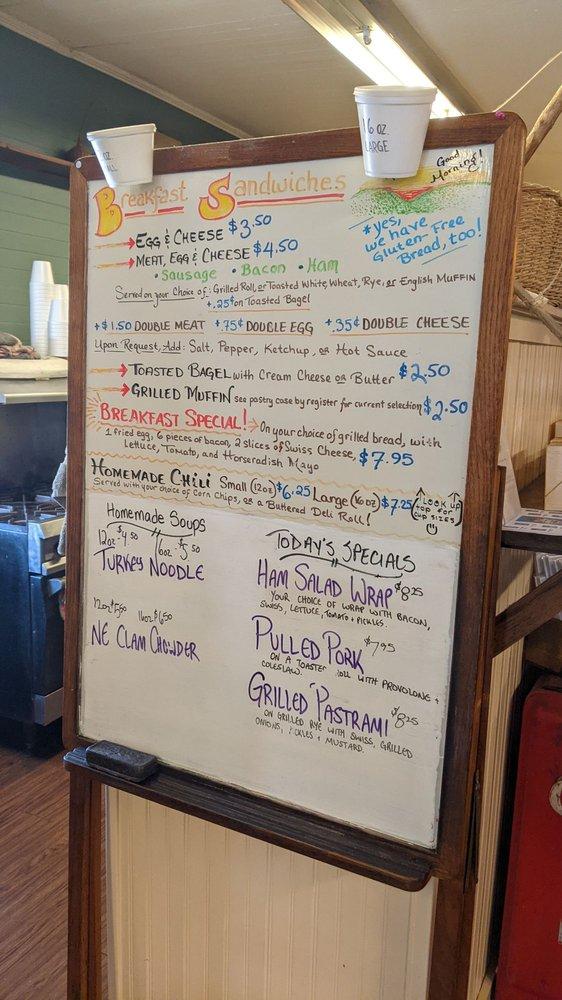 OZ.
16 OZ.
LARGE
Good Morning!
Breakfast Sandwiches
EGG & CHEESE $3.50
MEAT, EGG & CHEESE $4.50
• Sausage • Bacon • Ham
*yes, we have Gluten-Free Bread, too!
Served on your Choice of: Grilled Roll, or Toasted White, Wheat, Rye, or English Muffin
+.25¢ on Toasted Bagel
+$1.50 DOUBLE MEAT +.75¢ DOUBLE EGG +.35¢ DOUBLE CHEESE
Upon Request, Add: Salt, Pepper, Ketchup, or Hot Sauce
TOASTED BAGEL with Cream Cheese or Butter $2.50
GRILLED MUFFIN see pastry case by register for current selection $2.50
BREAKFAST SPECIAL! On your choice of grilled bread, with
1 fried egg, 6 pieces of bacon, 2 slices of Swiss Cheese,
Lettuce, Tomato, and Horseradish Mayo $7.95
HOMEMADE CHILI Small (12oz) $6.25 Large (16oz) $7.25
Served with your choice of Corn Chips, or a Buttered Deli Roll!
LOOK UP TOP FOR CUP SIZES
Homemade Soups
12oz $4.50 16oz $5.50
TURKEY NOODLE
12oz $5.50 16oz $6.50
NE CLAM CHOWDER
TODAY'S SPECIALS
HAM SALAD WRAP $8.25
YOUR CHOICE OF WRAP WITH BACON,
SWISS, LETTUCE, TOMATO + PICKLES.
PULLED PORK $7.95
ON A TOASTED ROLL WITH PROVOLONE +
COLESLAW.
GRILLED PASTRAMI $8.25
ON GRILLED RYE WITH SWISS, GRILLED
ONIONS, PICKLES + MUSTARD.